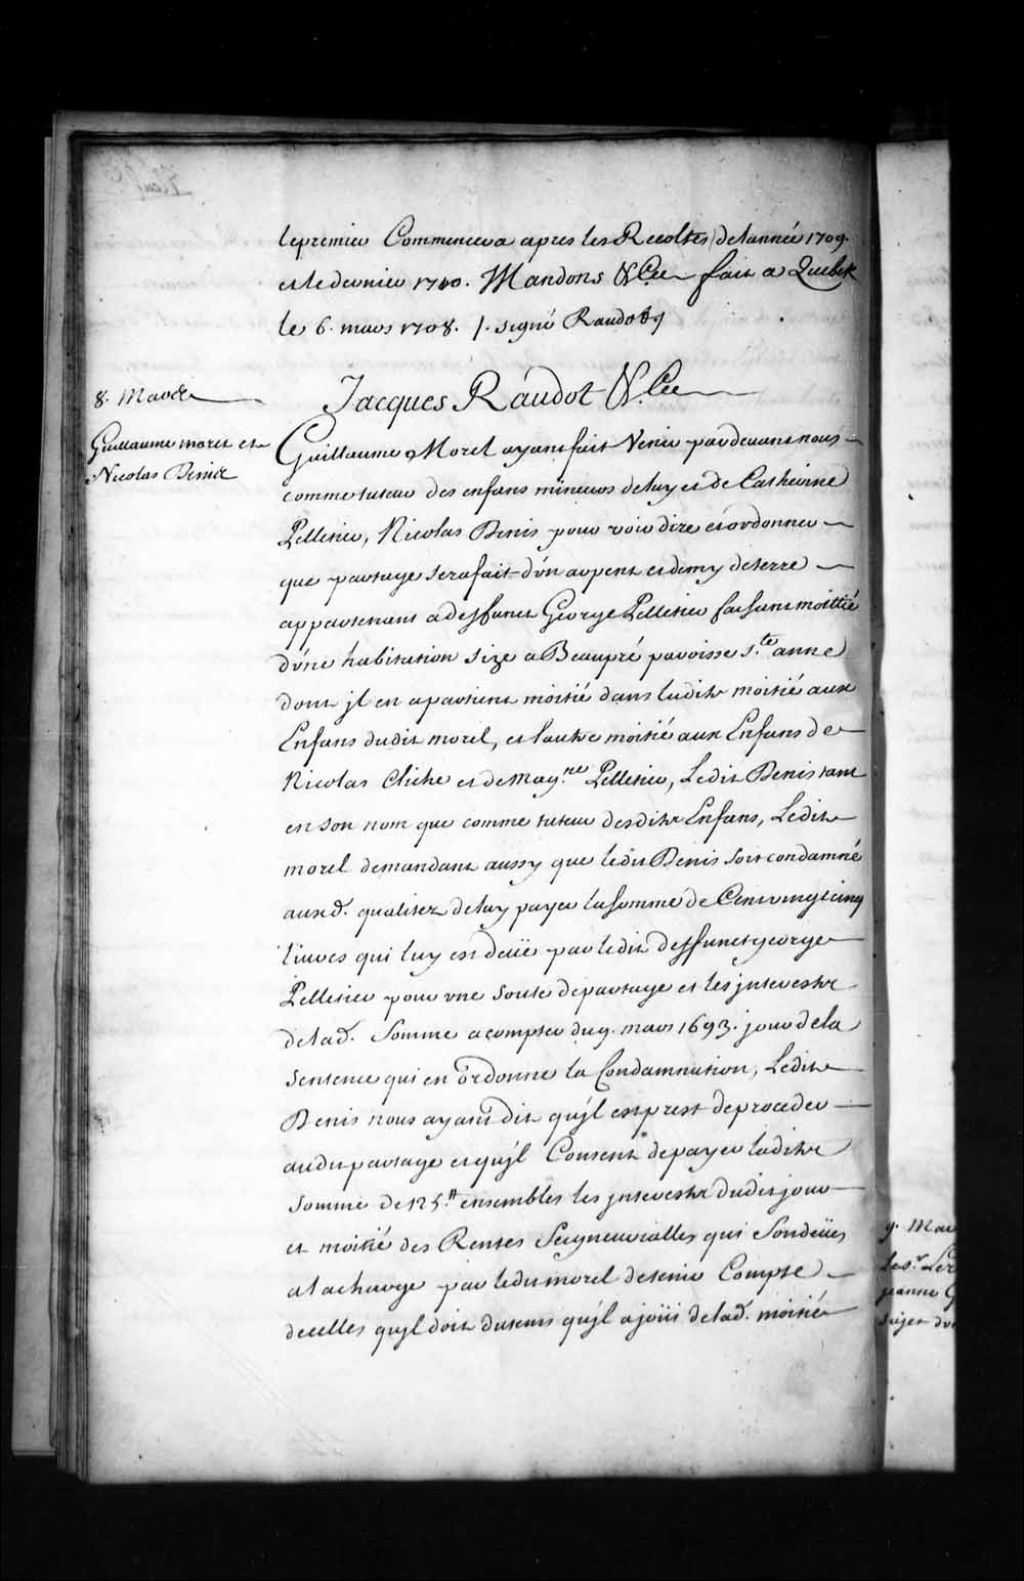 lepremier Commencera apres les Recoltes de lannée 1709.
et le dernier 1710. Mandons &c.e fait a Quebek
le 6. mars 1708. /. signé Raudot
8. Mars
Jacques Raudot &.Cee
Guillaume morel et
Nicolas Denis
Guillaume Morel ayant fait Venir pardevant nous
comme tuteur des enfans mineurs de luy et de Catherine
Pelletier, Nicolas Denis pour voir dire et ordonner
que partage sera fait d'vn arpent et demy de terre
appartenant a deffunct George Pelletier faisant moittié
d'vne habitation size a Beaupré paroisse s.te anne
dont jl en apartient moitié dans ladite moitié aux
Enfans dudit morel, et l'autre moitié aux Enfans de
Nicolas Cliche et de Mag.ne Pelletier, Ledit Denis tant
en son nom que comme tuteur desdits Enfans, Ledit
morel demandant aussy que ledit Denis soit condamné
aux d. qualitez de luy payer la somme de Cent vingt cinq
livres qui luy est deüe par ledit deffunct george
Pelletier pour vne soute de partage et les jnterests
de lad. Somme a compter du 9. mars 1693. jour de la
sentence qui en ordonne la Condamnation, Ledit
Denis nous ayant dit qu'jl est prest de proceder
audit partage et qu'jl Consent de payer ladite
somme de 125.# ensembles les jnterests dudit jour
et moitié des Rentes Seigneurialles qui sont deües
a la charge par ledit morel de tenir Compte
decelles qu'jl doit du tems qu'jl a joüi de lad. moitié
9. Mar
le s.r
jeanne G
sujet d'vn